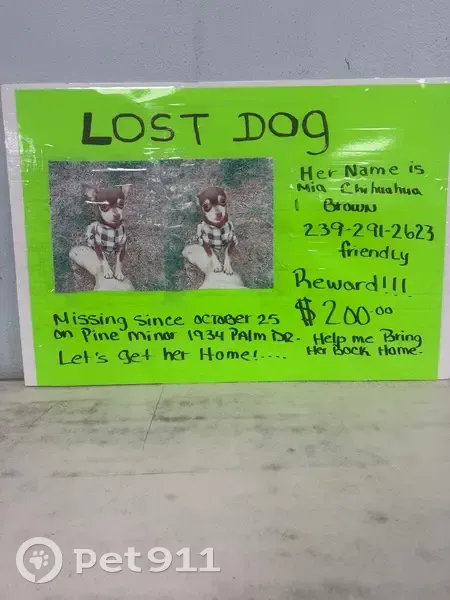 LOST DOg
Her Name is
Mia Chihuahua
Brown
239-291-2623
friendly
Reward!!!
$200.00
Help me Bring
Her Back Home.
Missing Since OCTOBER 25
on Pine Minor 1934 PAlm DR.
Let's get her Home!....
pet911